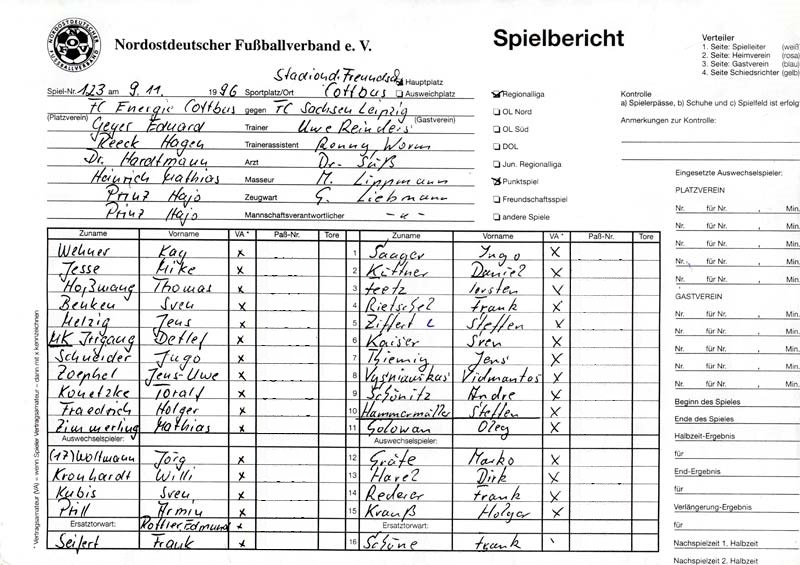 NORDOSTDEUTSCHER FUSSBALLVERBAND
NOFV
Nordostdeutscher Fußballverband e. V.
Spielbericht
Verteiler
1. Seite: Spielleiter (weiß
2. Seite: Heimverein (rosa)
3. Seite: Gastverein (blau)
4. Seite Schiedsrichter (gelb)
Spiel-Nr. 123 am 9.11. 1996 Sportplatz/Ort Stadion d. Freundsch. Cottbus Hauptplatz Ausweichplatz
FC Energie Cottbus gegen FC Sachsen Leipzig
(Platzverein) (Gastverein)
Geyer Eduard Trainer Uwe Reinders
Reeck Hagen Trainerassistent Ronny Worm
Dr. Hardtmann Arzt Dr. Süß
Heinrich Mathias Masseur M. Lippmann
Prinz Hajo Zeugwart G. Liebmann
Prinz Hajo Mannschaftsverantwortlicher - " -
Regionalliga
OL Nord
OL Süd
DOL
Jun. Regionalliga
Punktspiel
Freundschaftsspiel
andere Spiele
Kontrolle
a) Spielerpässe, b) Schuhe und c) Spielfeld ist erfolg
Anmerkungen zur Kontrolle:
Zuname Vorname VA * Paß-Nr. Tore Zuname Vorname VA * Paß-Nr. Tore
Wehner Kay x 1 Saager Ingo x
Jesse Mike x 2 Küttner Daniel x
Hoßmang Thomas x 3 Teetz Torsten x
Benken Sven x 4 Rietschel Frank x
Melzig Jens x 5 Ziffert c Steffen x
MK Irrgang Detlef x 6 Kaiser Sven x
Schneider Ingo x 7 Thiemig Jens x
Zoephel Jens-Uwe x 8 Vysniauskas Vidmantas x
Konetzke Toralf x 9 Schönitz Andre x
Fraedrich Holger x 10 Hammermüller Steffen x
Zimmerling Mathias x 11 Golowan Oleg x
Auswechselspieler: Auswechselspieler:
(17) Woltmann Jörg x 12 Gräfe Marko x
Kronhardt Willi x 13 Havel Dirk x
Kubis Sven x 14 Rederer Frank x
Prill Armin x 15 Krauß Holger x
Ersatztorwart: Rottler, Edmund x Ersatztorwart:
Seifert Frank x 16 Schöne Frank
* Vertragsamateur (VA) = wenn Spieler Vertragsamateur – dann mit x kennzeichnen
Eingesetzte Auswechselspieler:
PLATZVEREIN
Nr. für Nr. , Min.
Nr. für Nr. , Min.
Nr. für Nr. , Min.
Nr. für Nr. , Min.
GASTVEREIN
Nr. für Nr. , Min.
Nr. für Nr. , Min.
Nr. für Nr. , Min.
Nr. für Nr. , Min.
Nr. für Nr. , Min.
Beginn des Spieles
Ende des Spieles
Halbzeit-Ergebnis
für
End-Ergebnis
für
Verlängerung-Ergebnis
für
Nachspielzeit 1. Halbzeit
Nachspielzeit 2. Halbzeit